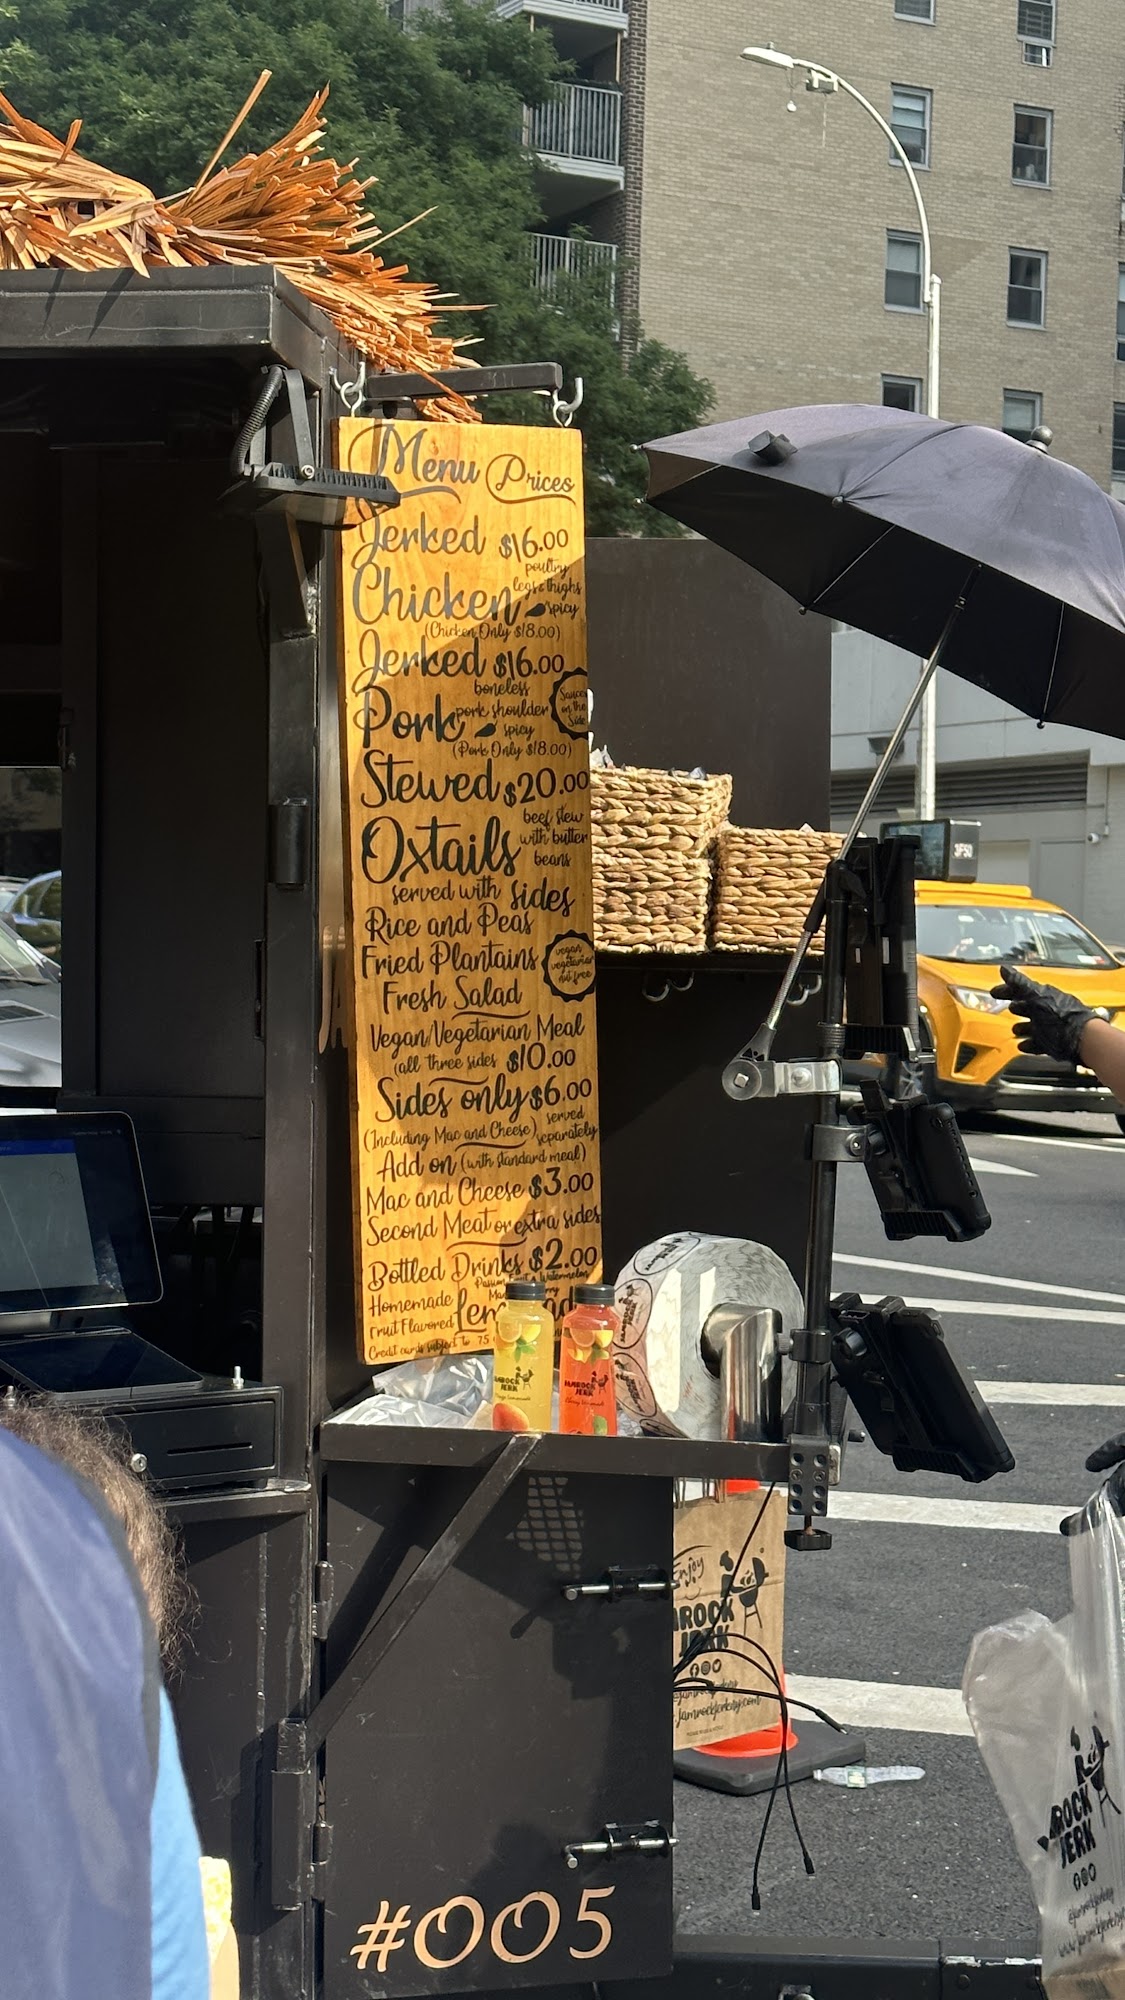 Menu Prices
Jerked $16.00
poultry
legs & thighs
Chicken spicy
(Chicken Only $18.00)
Jerked $16.00
boneless
Pork pork shoulder
spicy
(Pork Only $18.00)
Sauces
on the
Side
Stewed $20.00
beef stew
Oxtails with butter
beans
served with sides
Rice and Peas
Fried Plantains
vegan
vegetarian
nut free
Fresh Salad
Vegan/Vegetarian Meal
(all three sides $10.00
Sides only $6.00
served
(Including Mac and Cheese) separately
Add on (with standard meal)
Mac and Cheese $3.00
Second Meat or extra sides
Bottled Drinks $2.00
Homemade
Fruit Flavored
Credit cards subject to 75
JAMROCK
JERK
JAMROCK
JERK
3F50
Enjoy
MROCK
JERK
@jamrockjerkny
jamrockjerkny.com
ROCK
JERK
@jamrockjerkny
www.jamrockjerkny
#005